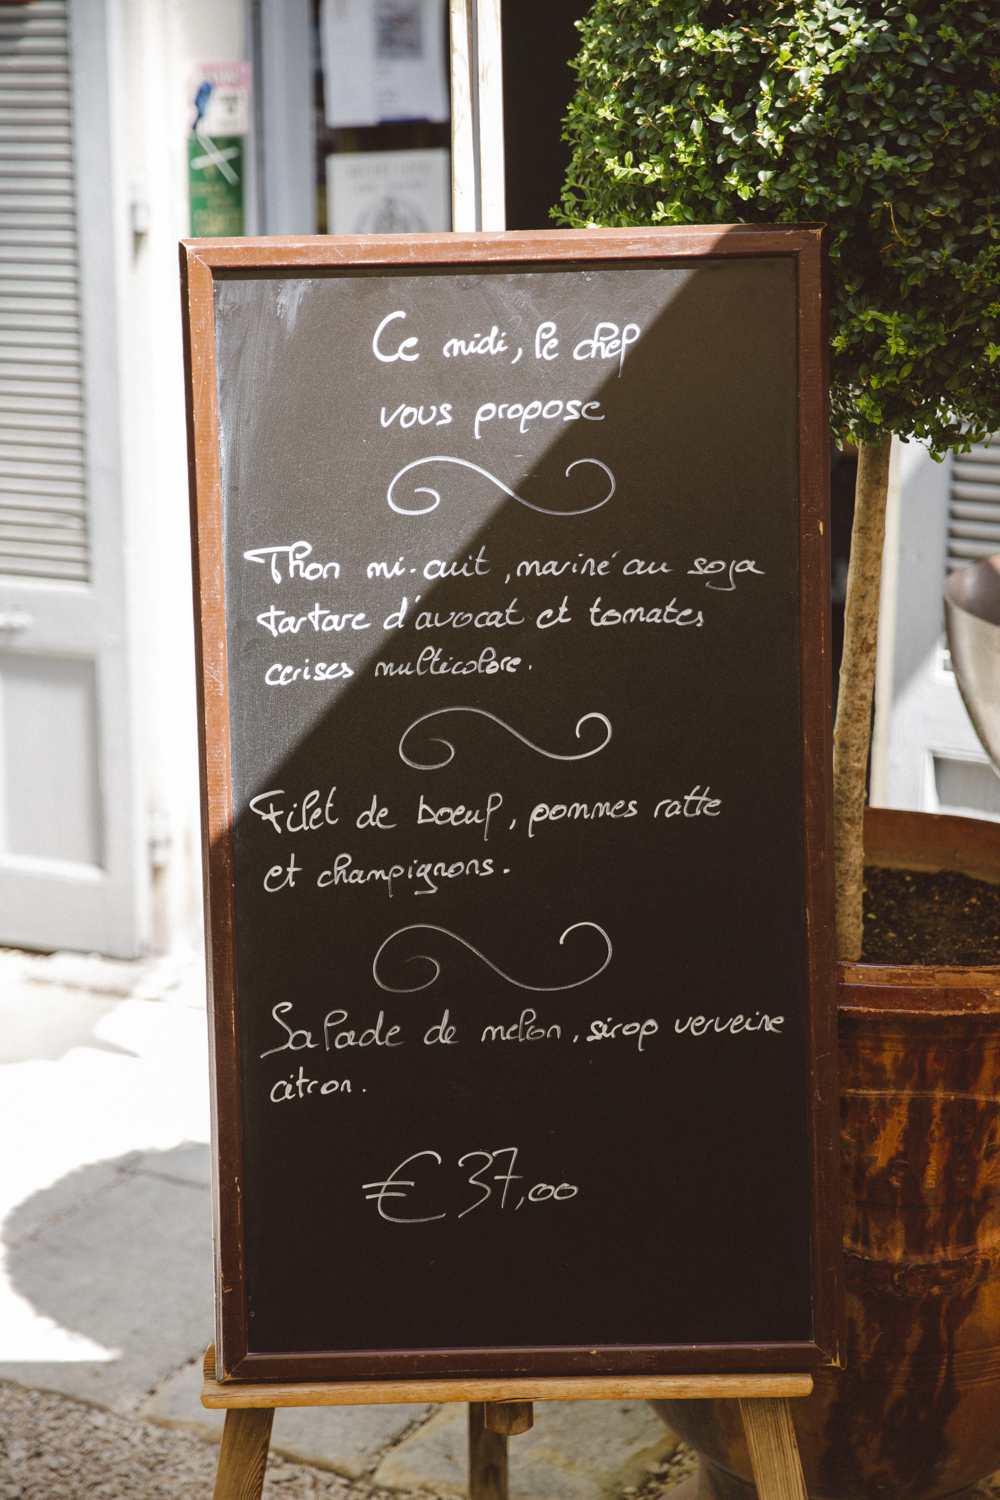 Ce midi, le chef
vous propose
Thon mi-cuit, mariné au soja
tartare d'avocat et tomates
cerises multicolore.
Filet de boeuf, pommes ratte
et champignons.
Salade de melon, sirop verveine
citron.
€ 37,00